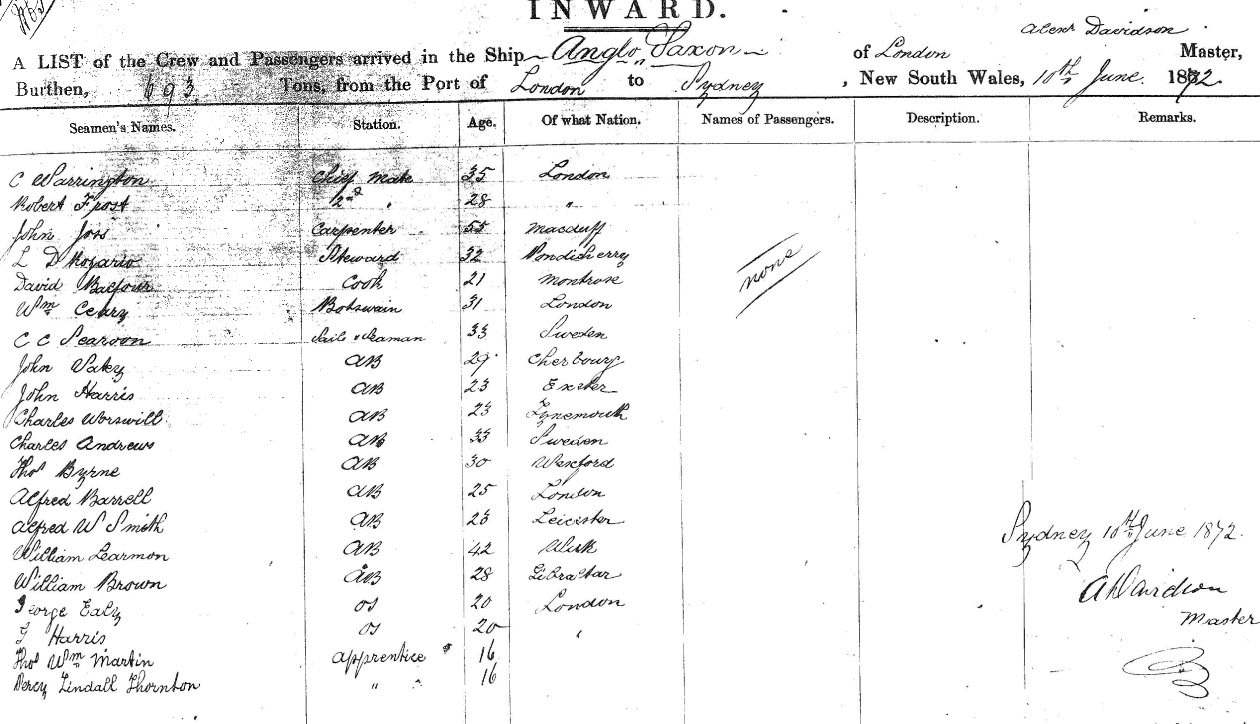 INWARD.
Alexr Davidson
A LIST of the Crew and Passengers arrived in the Ship Anglo Saxon of London Master,
Burthen, 693 Tons, from the Port of London to Sydney, New South Wales, 10th June 1872
Seamen's Names. Station. Age. Of what Nation. Names of Passengers. Description. Remarks.
C Warrington Chief Mate 35 London
Robert Frost 2nd " 28 "
John 55 Carpenter Macduff
L D Rozario Steward 32 Pondicherry
none
David Balfour Cook 21 Montrose
Wm Botswain 31 London
C C Sails & Seaman 33 Sweden
John AB 29 Cherbourg
John Harris AB 23 Exeter
Charles Worswill AB 23 Tynemouth
Charles Andrews AB 33 Sweden
Thos Byrne AB 30 Wexford
Alfred Barrell AB 25 London
Alfred W Smith AB 23 Leicister
Sydney 10th June 1872.
William Learmon AB 42 Wick
William Brown AB 28 Gibraltar
A Davidson
George Ealy OS 20 London
Master
Harris OS 20 "
Thos Wm Martin apprentice 16
Percy Lindall Thornton " 16